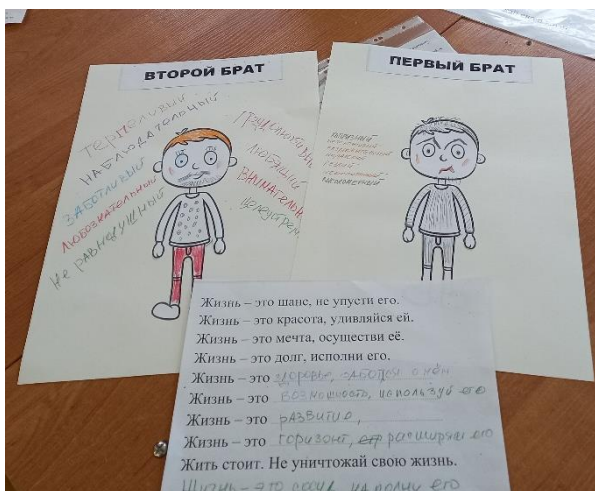 ВТОРОЙ БРАТ
ТЕРПЕЛИВЫЙ
НАБЛЮДАТЕЛЬНЫЙ
ЗАБОТЛИВЫЙ
ЛЮБОЗНАТЕЛЬНЫЙ
Не РАВНОДУШНЫЙ
ТРУДОЛЮБИВЫ
ЛЮБЯЩИЙ
ВНИМАТЕЛЬН
ЦЕЛЕУСТРЕМ
ПЕРВЫЙ БРАТ
Жизнь – это шанс, не упусти его.
Жизнь – это красота, удивляйся ей.
Жизнь – это мечта, осуществи её.
Жизнь – это долг, исполни его.
Жизнь – это здоровье, заботься о нём
Жизнь – это возможность, используй его
Жизнь – это РАЗВИТИЕ,
Жизнь – это горизонт, расширяй его
Жить стоит. Не уничтожай свою жизнь.
Жизнь – это сосуд, наполни его